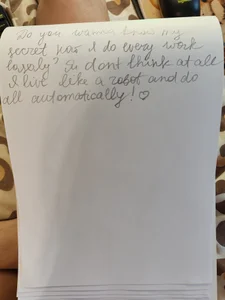 Do you wanna know my
secret how I do every work
lassaly? So dont think at all
I live like a robot and do
all automatically! ♡